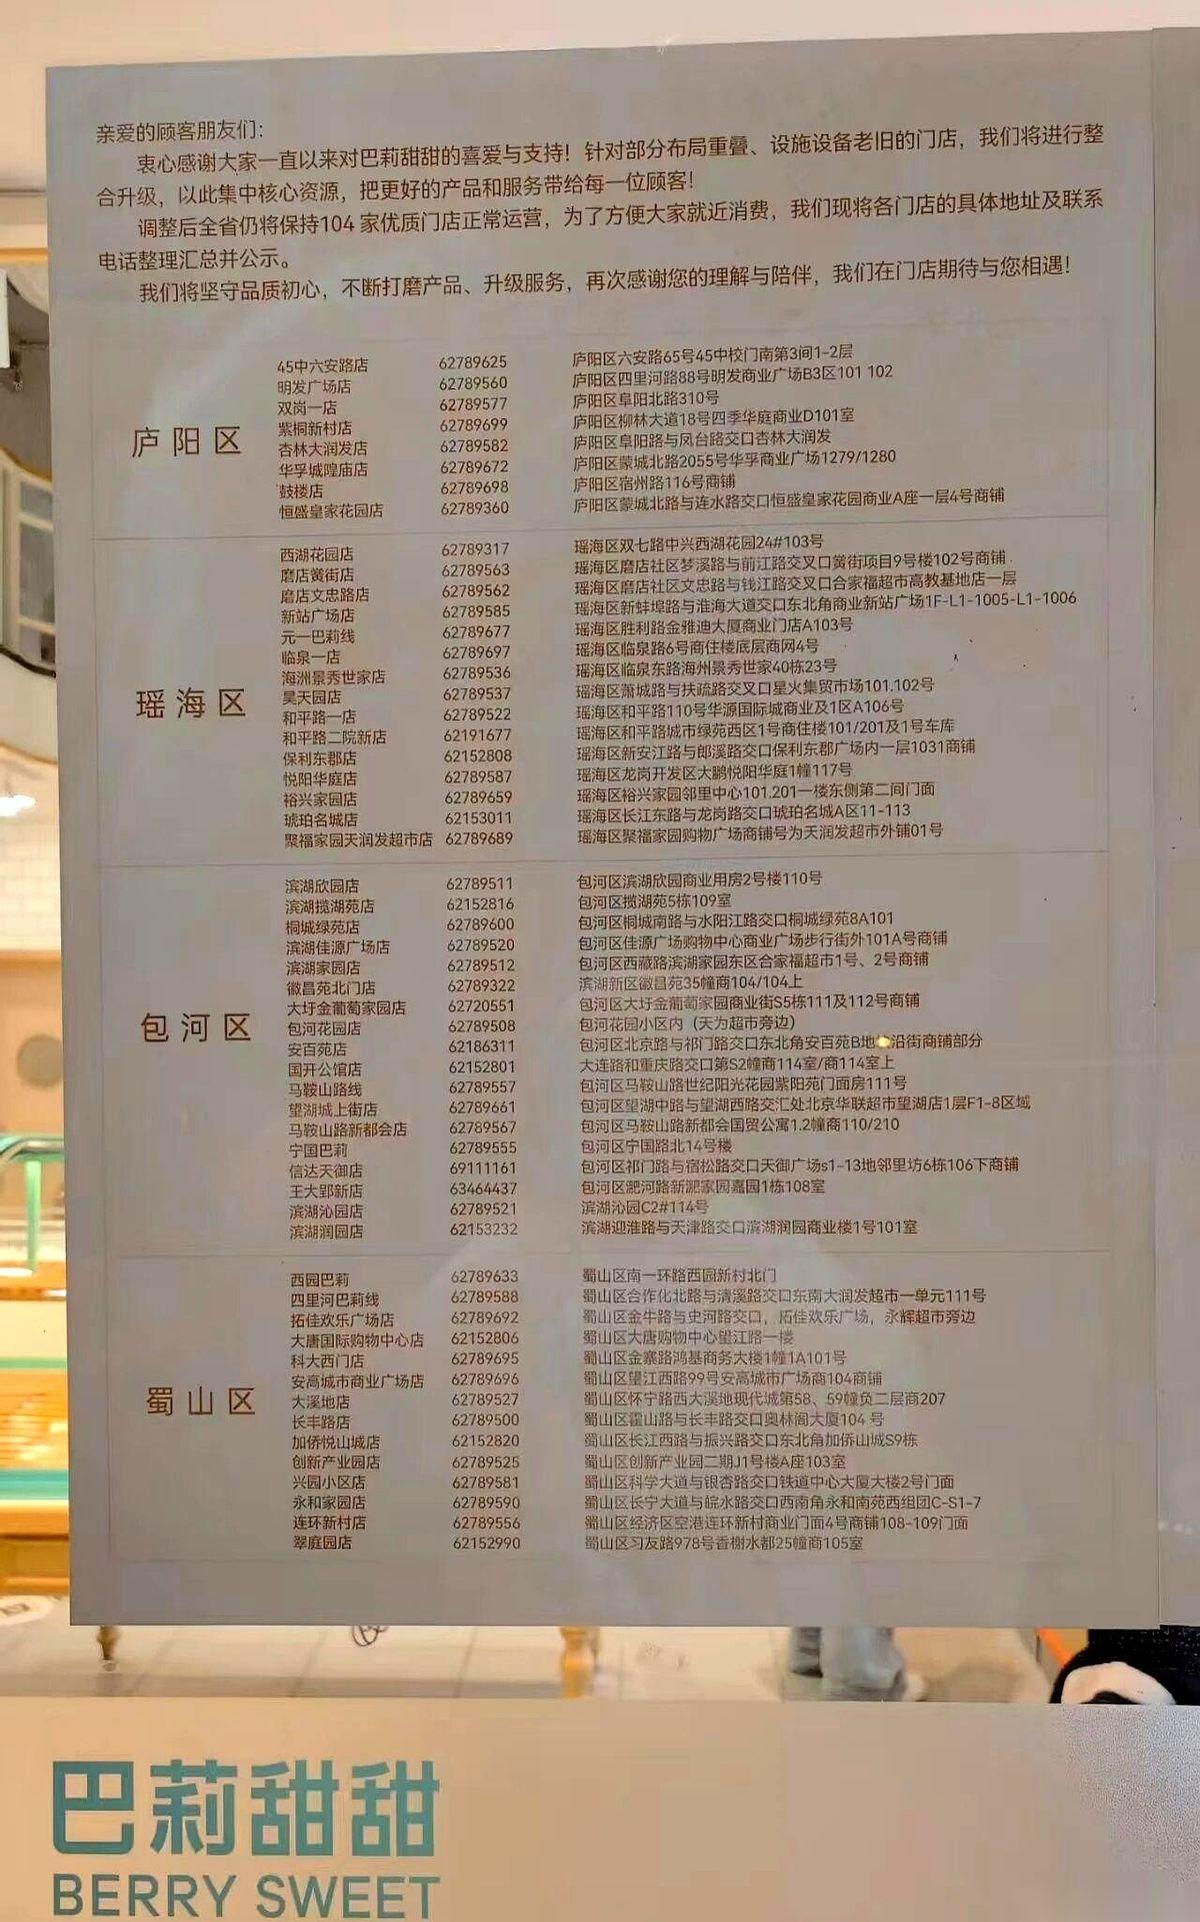 亲爱的顾客朋友们：
衷心感谢大家一直以来对巴莉甜甜的喜爱与支持！针对部分布局重叠、设施设备老旧的门店，我们将进行整
合升级，以此集中核心资源，把更好的产品和服务带给每一位顾客！
调整后全省仍将保持104 家优质门店正常运营，为了方便大家就近消费，我们现将各门店的具体地址及联系
电话整理汇总并公示。
我们将坚守品质初心，不断打磨产品、升级服务，再次感谢您的理解与陪伴，我们在门店期待与您相遇！
庐阳区
45中六安路店 62789625 庐阳区六安路65号45中校门南第3间1-2层
明发广场店 62789560 庐阳区四里河路88号明发商业广场B3区101 102
双岗一店 62789577 庐阳区阜阳北路310号
紫桐新村店 62789699 庐阳区柳林大道18号四季华庭商业D101室
杏林大润发店 62789582 庐阳区阜阳路与凤台路交口杏林大润发
华孚城隍庙店 62789672 庐阳区蒙城北路2055号华孚商业广场1279/1280
鼓楼店 62789698 庐阳区宿州路116号商铺
恒盛皇家花园店 62789360 庐阳区蒙城北路与连水路交口恒盛皇家花园商业A座一层4号商铺
瑶海区
西湖花园店 62789317 瑶海区双七路中兴西湖花园24#103号
磨店黉街店 62789563 瑶海区磨店社区梦溪路与前江路交叉口黉街项目9号楼102号商铺
磨店文忠路店 62789562 瑶海区磨店社区文忠路与钱江路交叉口合家福超市高教基地店一层
新站广场店 62789585 瑶海区新蚌埠路与淮海大道交口东北角商业新站广场1F-L1-1005-L1-1006
元一巴莉线 62789677 瑶海区胜利路金雅迪大厦商业门店A103号
临泉一店 62789697 瑶海区临泉路6号商住楼底层商网4号
海洲景秀世家店 62789536 瑶海区临泉东路海州景秀世家40栋23号
昊天园店 62789537 瑶海区萧城路与扶疏路交叉口星火集贸市场101.102号
和平路一店 62789522 瑶海区和平路110号华源国际城商业及1区A106号
和平路二院新店 62191677 瑶海区和平路城市绿苑西区1号商住楼101/201及1号车库
保利东郡店 62152808 瑶海区新安江路与郎溪路交口保利东郡广场内一层1031商铺
悦阳华庭店 62789587 瑶海区龙岗开发区大鹏悦阳华庭1幢117号
裕兴家园店 62789659 瑶海区裕兴家园邻里中心101.201一楼东侧第二间门面
琥珀名城店 62153011 瑶海区长江东路与龙岗路交口琥珀名城A区11-113
聚福家园天润发超市店 62789689 瑶海区聚福家园购物广场商铺号为天润发超市外铺01号
包河区
滨湖欣园店 62789511 包河区滨湖欣园商业用房2号楼110号
滨湖揽湖苑店 62152816 包河区揽湖苑5栋109室
桐城绿苑店 62789600 包河区桐城南路与水阳江路交口桐城绿苑8A101
滨湖佳源广场店 62789520 包河区佳源广场购物中心商业广场步行街外101A号商铺
滨湖家园店 62789512 包河区西藏路滨湖家园东区合家福超市1号、2号商铺
徽昌苑北门店 62789322 滨湖新区徽昌苑35幢商104/104上
大圩金葡萄家园店 62720551 包河区大圩金葡萄家园商业街S5栋111及112号商铺
包河花园店 62789508 包河花园小区内（天为超市旁边）
安百苑店 62186311 包河区北京路与祁门路交口东北角安百苑B地 沿街商铺部分
国开公馆店 62152801 大连路和重庆路交口第S2幢商114室/商114室上
马鞍山路线 62789557 包河区马鞍山路世纪阳光花园紫阳苑门面房111号
望湖城上街店 62789661 包河区望湖中路与望湖西路交汇处北京华联超市望湖店1层F1-8区域
马鞍山路新都会店 62789567 包河区马鞍山路新都会国贸公寓1.2幢商110/210
宁国巴莉 62789555 包河区宁国路北14号楼
信达天御店 69111161 包河区祁门路与宿松路交口天御广场s1-13地邻里坊6栋106下商铺
王大郢新店 63464437 包河区淝河路新淝家园嘉园1栋108室
滨湖沁园店 62789521 滨湖沁园C2#114号
滨湖润园店 62153232 滨湖迎淮路与天津路交口滨湖润园商业楼1号101室
蜀山区
西园巴莉 62789633 蜀山区南一环路西园新村北门
四里河巴莉线 62789588 蜀山区合作化北路与清溪路交口东南大润发超市一单元111号
拓佳欢乐广场店 62789692 蜀山区金牛路与史河路交口，拓佳欢乐广场，永辉超市旁边
大唐国际购物中心店 62152806 蜀山区大唐购物中心望江路一楼
科大西门店 62789695 蜀山区金寨路鸿基商务大楼1幢1A101号
安高城市商业广场店 62789696 蜀山区望江西路99号安高城市广场商104商铺
大溪地店 62789527 蜀山区怀宁路西大溪地现代城第58、59幢负二层商207
长丰路店 62789500 蜀山区霍山路与长丰路交口奥林阁大厦104 号
加侨悦山城店 62152820 蜀山区长江西路与振兴路交口东北角加侨山城S9栋
创新产业园店 62789525 蜀山区创新产业园二期J1号楼A座103室
兴园小区店 62789581 蜀山区科学大道与银杏路交口铁道中心大厦大楼2号门面
永和家园店 62789590 蜀山区长宁大道与皖水路交口西南角永和南苑西组团C-S1-7
连环新村店 62789556 蜀山区经济区空港连环新村商业门面4号商铺108-109门面
翠庭园店 62152990 蜀山区习友路978号香榭水都25幢商105室
巴莉甜甜
BERRY SWEET